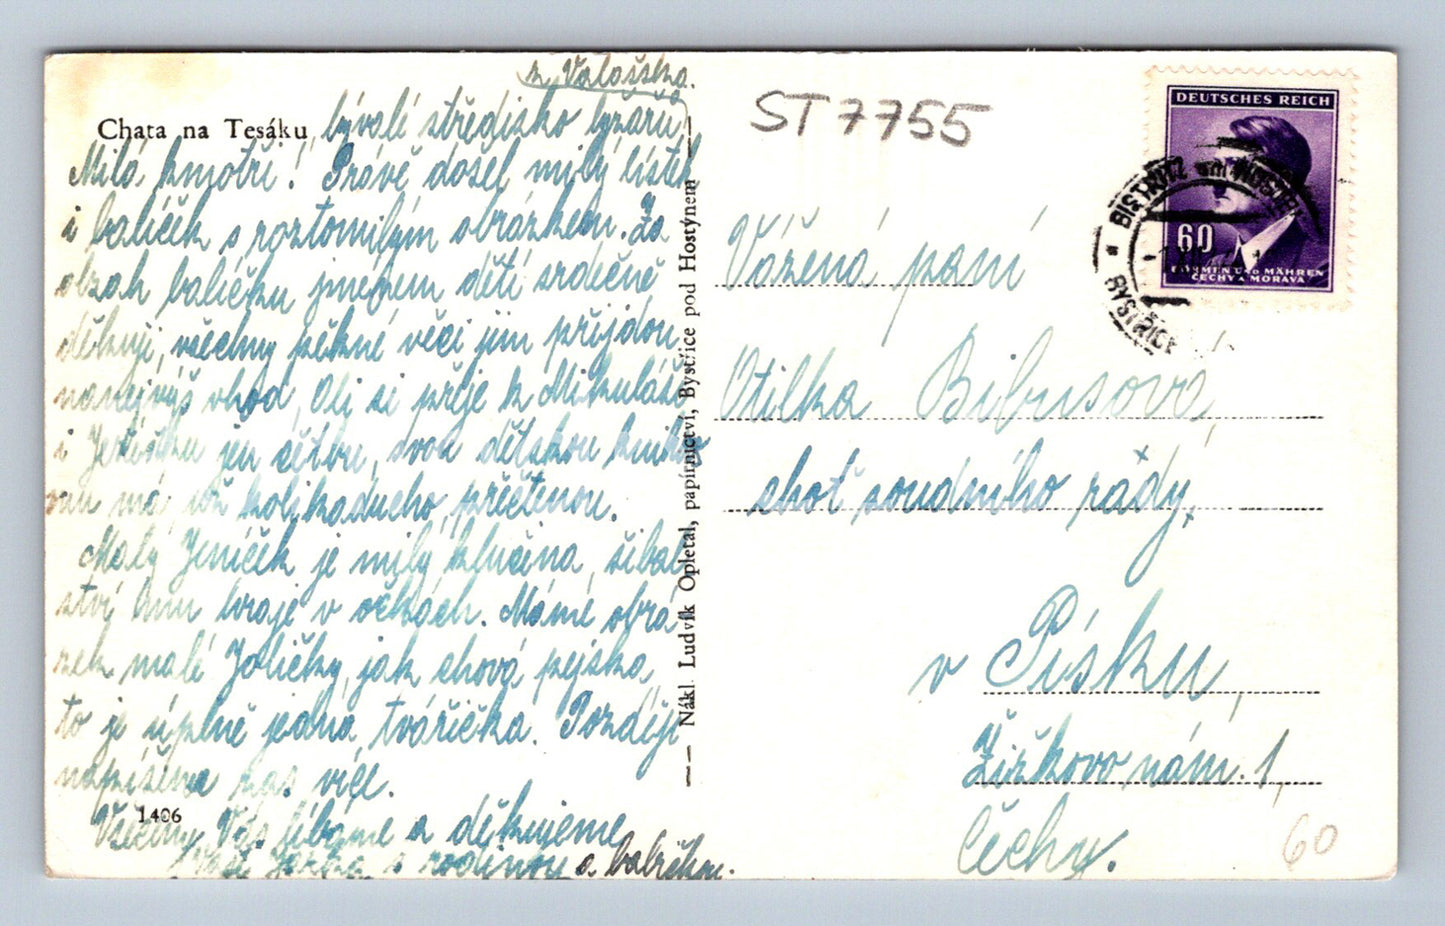 z Valašska.
Chata na Tesáku, bývalé středisko lyžařů
Milá kmotři! Právě došel milý lístek
i balíček s roztomilým obrázkem. Za
obsah balíčku jménem dětí srdečně
děkuji, všechny pěkné věci jim přijdou
nanejvýš vhod, Oli si přeje k Mikuláši
i Ježíšku jen četbu, svou dětskou knihov
nu má již kolikaducho přečtenou.
Malý Jeníček je milý klučina, šibal
ství mu hraje v očkách. Máme obrá
zek malé Joličky, jak chová pejska,
to je úplně jedna tvářička. Později
napíšeme zas více.
1406
Všechny Vás líbáme a děkujeme
Vaše s rodinou a babičkou.
— Nákl. Ludvík Opletal, papírnictví, Bystřice pod Hostýnem —
ST 7755
DEUTSCHES REICH
60
BÖHMEN UND MÄHREN
ČECHY A MORAVA
BISTRITZ am HOSTEIN
BYSTŘICE
Vážená paní
Otilka Bibusová,
choť soudního rady,
v Písku,
Žižkovo nám. 1,
Čechy.
60